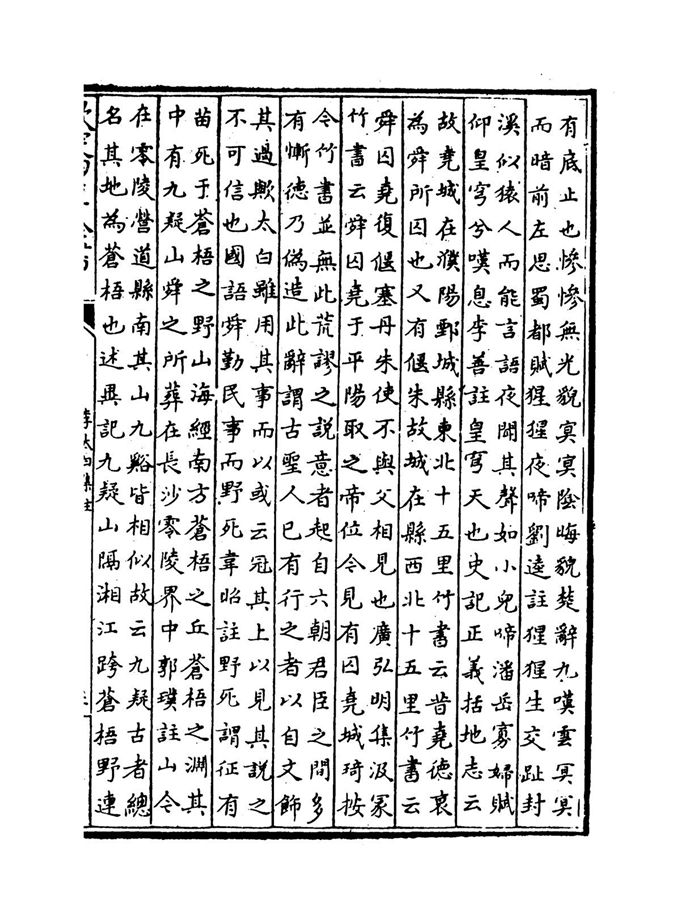 有底止也慘慘無光貌冥冥陰晦貌楚辭九嘆雲冥冥
而暗前左思蜀都賦猩猩夜啼劉逵註猩猩生交趾封
溪似猿人而能言語夜聞其聲如小兒啼潘岳寡婦賦
仰皇穹兮嘆息李善註皇穹天也史記正義括地志云
故堯城在濮陽鄄城縣東北十五里竹書云昔堯德衰
為舜所囚也又有偃朱故城在縣西北十五里竹書云
舜囚堯復偃塞丹朱使不與父相見也廣弘明集汲冡
竹書云舜囚堯于平陽取之帝位今見有囚堯城琦按
今竹書並無此荒謬之説意者起自六朝君臣之間多
有慚德乃偽造此辭謂古聖人已有行之者以自文飾
其過歟太白雖用其事而以或云冠其上以見其說之
不可信也國語舜勤民事而野死韋昭註野死謂征有
苗死于蒼梧之野山海經南方蒼梧之丘蒼梧之淵其
中有九疑山舜之所葬在長沙零陵界中郭璞註山今
在零陵營道縣南其山九谿皆相似故云九疑古者總
名其地為蒼梧也述異記九疑山隔湘江跨蒼梧野連
欽定四庫全書
李太白集註